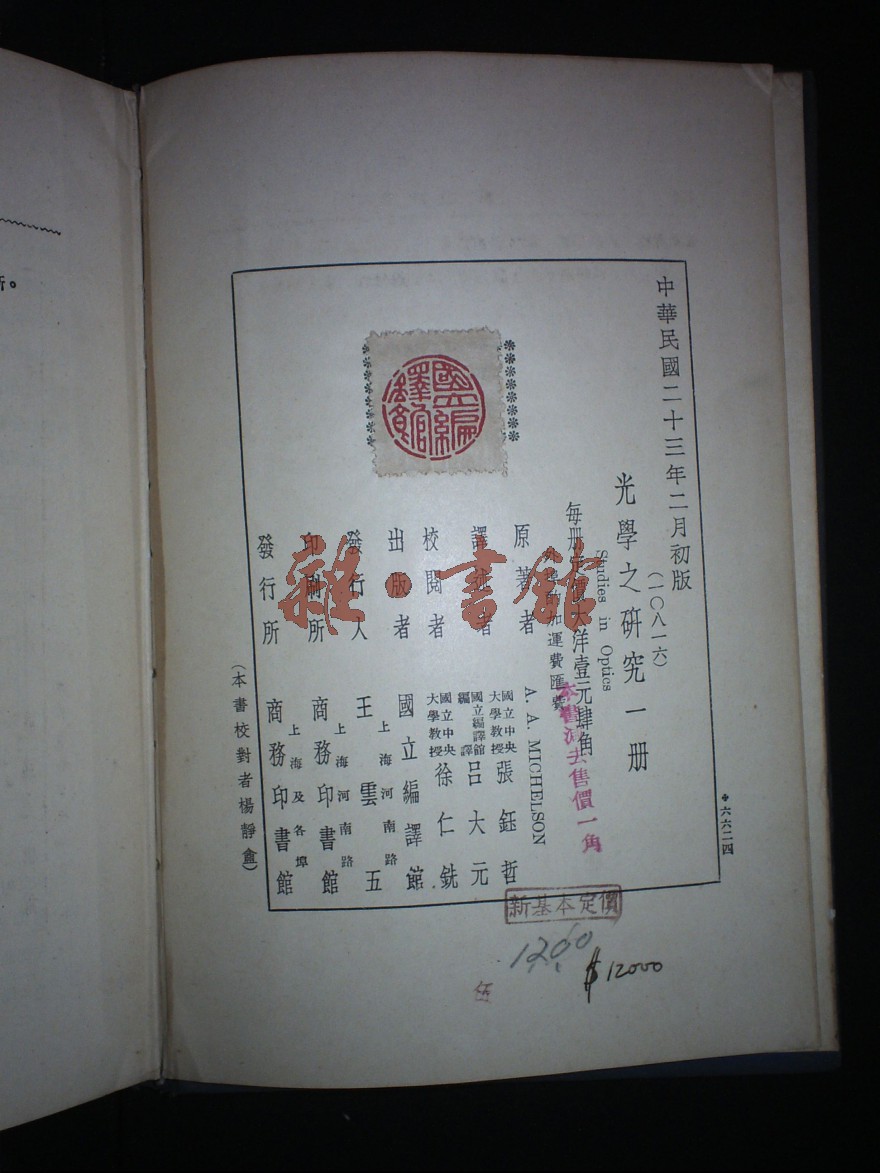 中華民國二十三年二月初版
(一〇八一六)
光學之研究一册
Studies in Optics
每册定價大洋壹元肆角
外埠酌加運費匯費
原著者 A. A. MICHELSON
譯述者 國立中央大學教授 張鈺哲
國立編譯館編譯 呂大元
校閱者 國立中央大學教授 徐仁銑
出版者 國立編譯館
發行人 王雲五
上海河南路
印刷所 商務印書館
上海河南路
發行所 商務印書館
上海及各埠
(本書校對者楊靜盦)
六六二四
國立編譯館
本書減去售價一角
新基本定價
1200
$12000
伍
雜·書館
所。